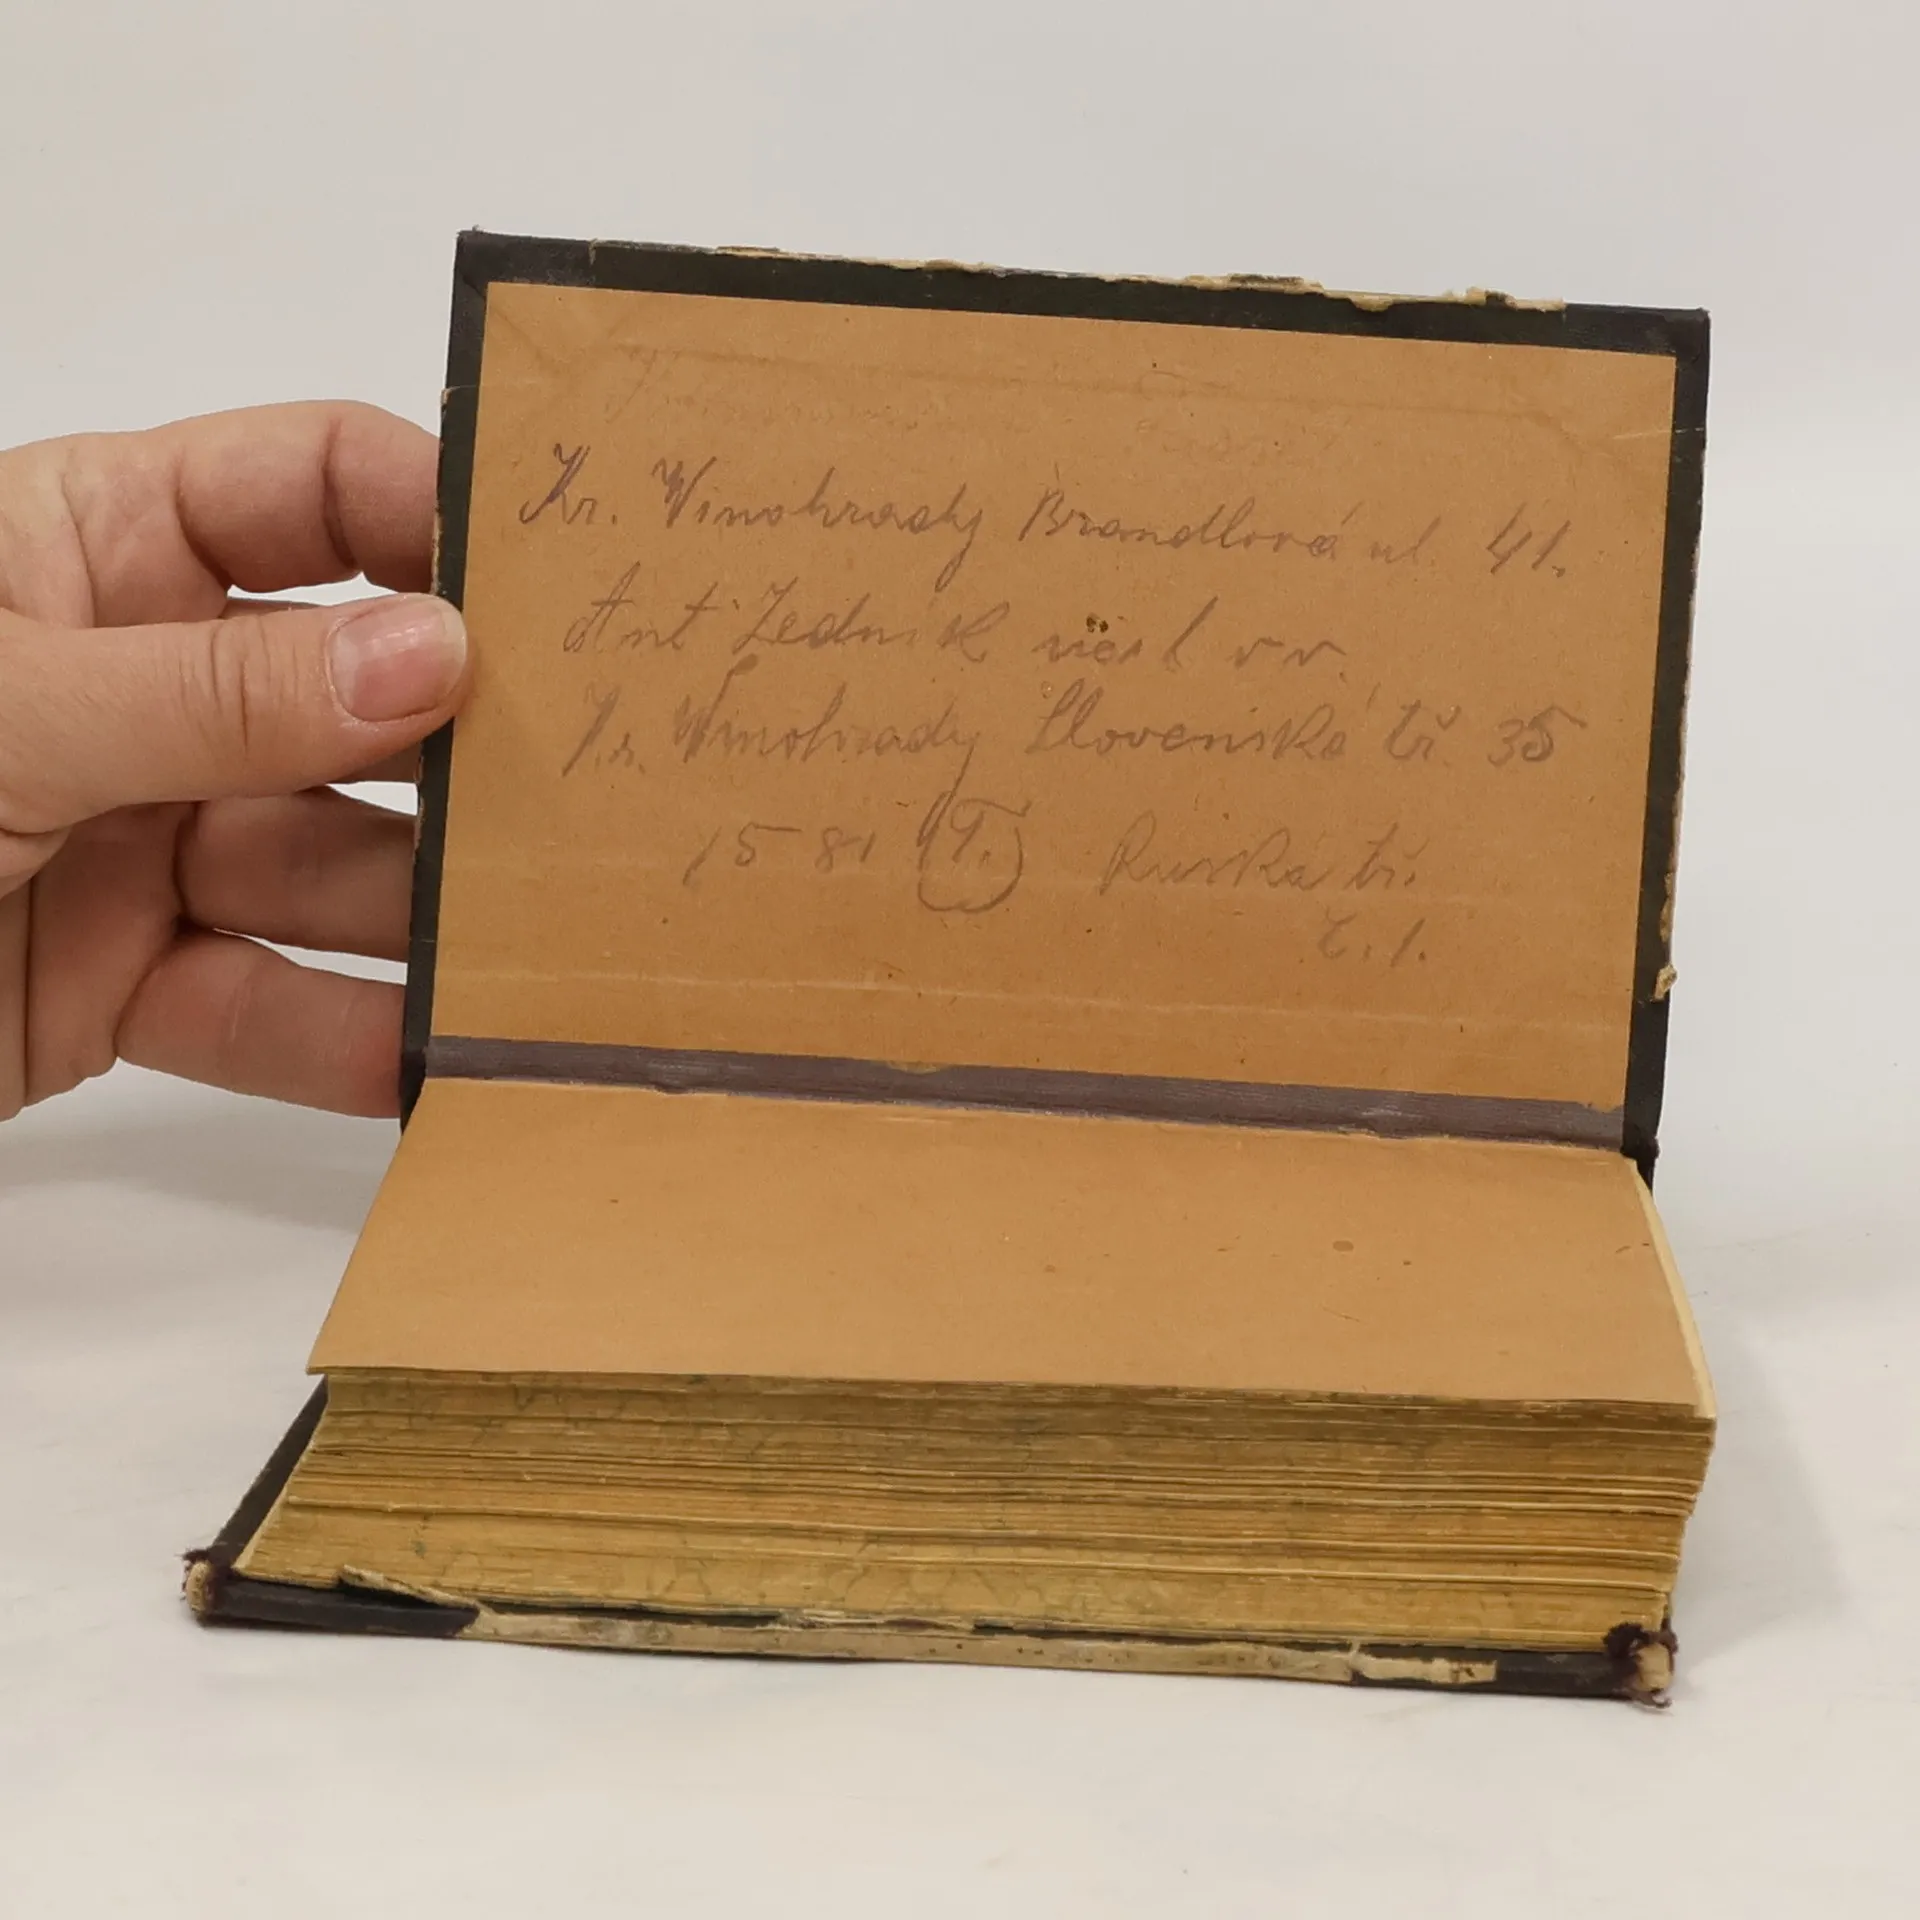 Kr. Vinohrady Brandlová ul. 41.
Ant Zedník
Kr. Vinohrady Slovenská tř. 35
1581 (I.) Ruská tř.
č. 1.